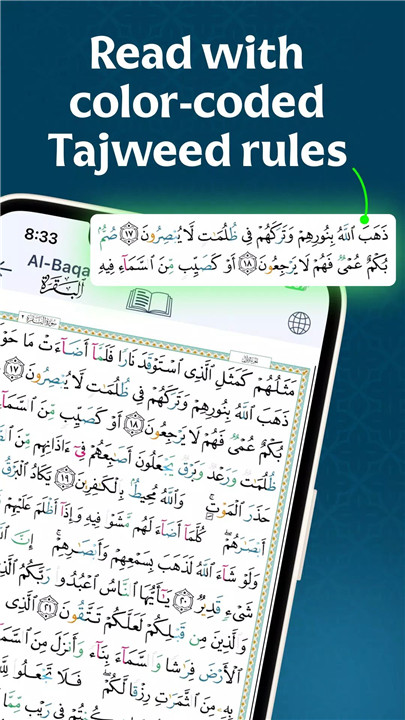 Read with
color-coded
Tajweed rules
ذَهَبَ ٱللَّهُ بِنُورِهِمْ وَتَرَكَهُمْ فِى ظُلُمَٰتٍ لَّا يُبْصِرُونَ ١٧ صُمٌّۢ
بُكْمٌ عُمْىٌ فَهُمْ لَا يَرْجِعُونَ ١٨ أَوْ كَصَيِّبٍ مِّنَ ٱلسَّمَآءِ فِيهِ
8:33
Al-Baqa
البقرة
مَثَلُهُمْ كَمَثَلِ ٱلَّذِى ٱسْتَوْقَدَ نَارًا فَلَمَّآ أَضَآءَتْ مَا حَوْ
ذَهَبَ ٱللَّهُ بِنُورِهِمْ وَتَرَكَهُمْ فِى ظُلُمَٰتٍ لَّا يُبْصِرُونَ ١٧
بُكْمٌ عُمْىٌ فَهُمْ لَا يَرْجِعُونَ ١٨ أَوْ كَصَيِّبٍ مِّنَ ٱلسَّمَا
ظُلُمَٰتٌ وَرَعْدٌ وَبَرْقٌ يَجْعَلُونَ أَصَٰبِعَهُمْ فِىٓ ءَاذَانِهِم مِّنَ
حَذَرَ ٱلْمَوْتِ ۚ وَٱللَّهُ مُحِيطٌۢ بِٱلْكَٰفِرِينَ ١٩ يَكَادُ ٱلْبَرْقُ
أَبْصَٰرَهُمْ ۖ كُلَّمَآ أَضَآءَ لَهُم مَّشَوْا۟ فِيهِ وَإِذَآ أَظْلَمَ عَلَيْهِمْ
وَلَوْ شَآءَ ٱللَّهُ لَذَهَبَ بِسَمْعِهِمْ وَأَبْصَٰرِهِمْ ۚ إِنَّ ٱللَّ
شَىْءٍ قَدِيرٌ ٢٠ يَٰٓأَيُّهَا ٱلنَّاسُ ٱعْبُدُوا۟ رَبَّكُمُ ٱلَّذِ
وَٱلَّذِينَ مِن قَبْلِكُمْ لَعَلَّكُمْ تَتَّقُونَ ٢١ ٱلَّذِى
ٱلْأَرْضَ فِرَٰشًا وَٱلسَّمَآءَ بِنَآءً وَأَنزَلَ مِنَ ٱلسَّمَ
بِهِۦ مِنَ ٱلثَّمَرَٰتِ رِزْقًا لَّكُمْ ۖ فَلَا تَجْعَلُوا۟ لِلَّ
كُنتُمْ فِى رَيْبٍ مِّمَّا